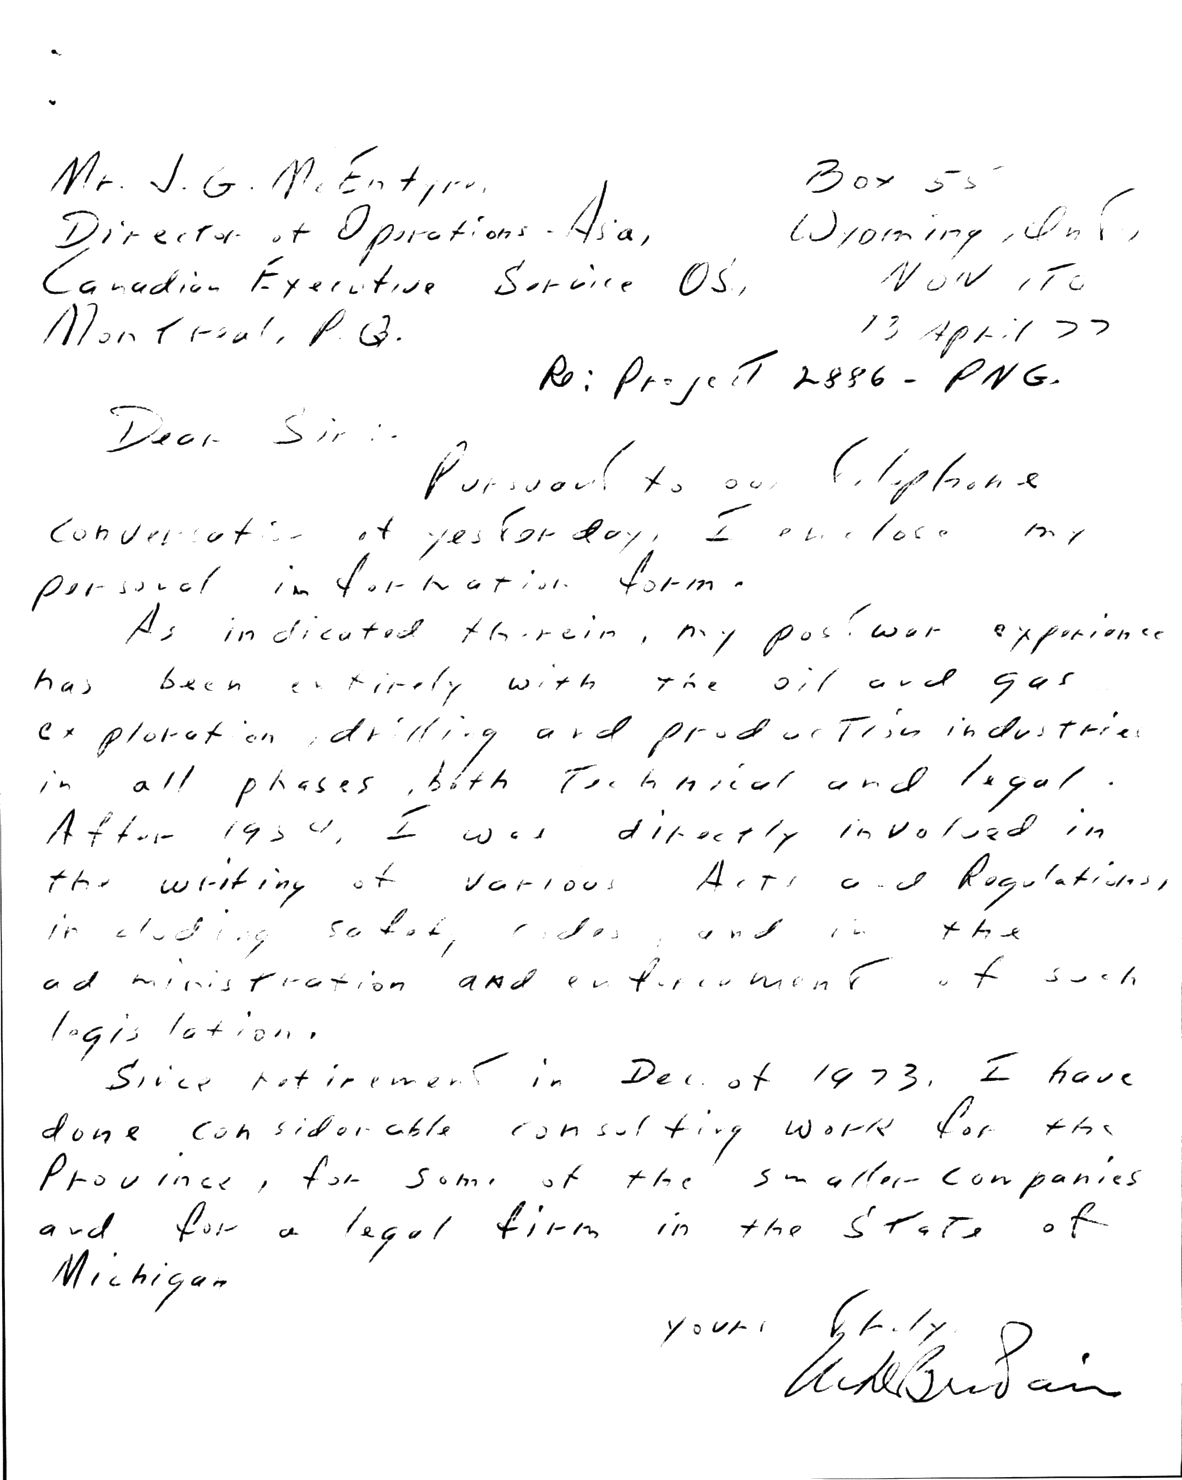 Mr. J. G. McEntyre,
Box 55
Director of Operations - Asia,
Wyoming, Ont.,
Canadian Executive Service OS.,
N0N 1T0
Montreal, P.Q.
13 April 77
Re: Project 2886 - PNG.
Dear Sir:-
Pursuant to our Telephone
conversation of yesterday, I enclose my
personal information form.
As indicated therein, my post war experience
has been entirely with the oil and gas
exploration, drilling and production industries
in all phases, both Technical and legal.
After 1954, I was directly involved in
the writing of various Acts and Regulations,
including safety codes, and in the
administration and enforcement of such
legislation.
Since retirement in Dec. of 1973, I have
done considerable consulting work for the
Province, for some of the smaller companies
and for a legal firm in the State of
Michigan
yours truly,